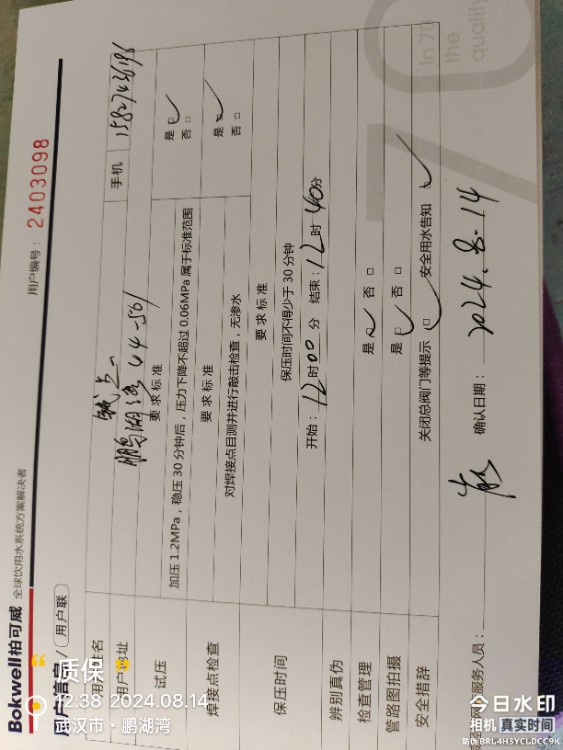 Bokwell柏可威 全球饮用水系统方案解决者
用户信息 / 用户联
用户编号：2403098
用户姓名
手机 15827436195
用户地址 鹏湖湾 44-561
试压
要求标准
加压1.2MPa，稳压30分钟后，压力下降不超过0.06MPa属于标准范围
是□
否□
焊接点检查
要求标准
对焊接点目测并进行敲击检查，无渗水
是□
否□
保压时间
要求标准
保压时间不得少于30分钟
开始：12时00分 结束：12时40分
辨别真伪
检查管理
是□ 否□
管路图拍摄
是□ 否□
安全措辞
关闭总阀门等提示□ 安全用水告知
服务人员：
确认日期：2024.8.14
In 70
the
quality
70
质保
12:38 2024.08.14
武汉市·鹏湖湾
今日水印
相机 真实时间
防伪 BRL4H3YCLDCC9K